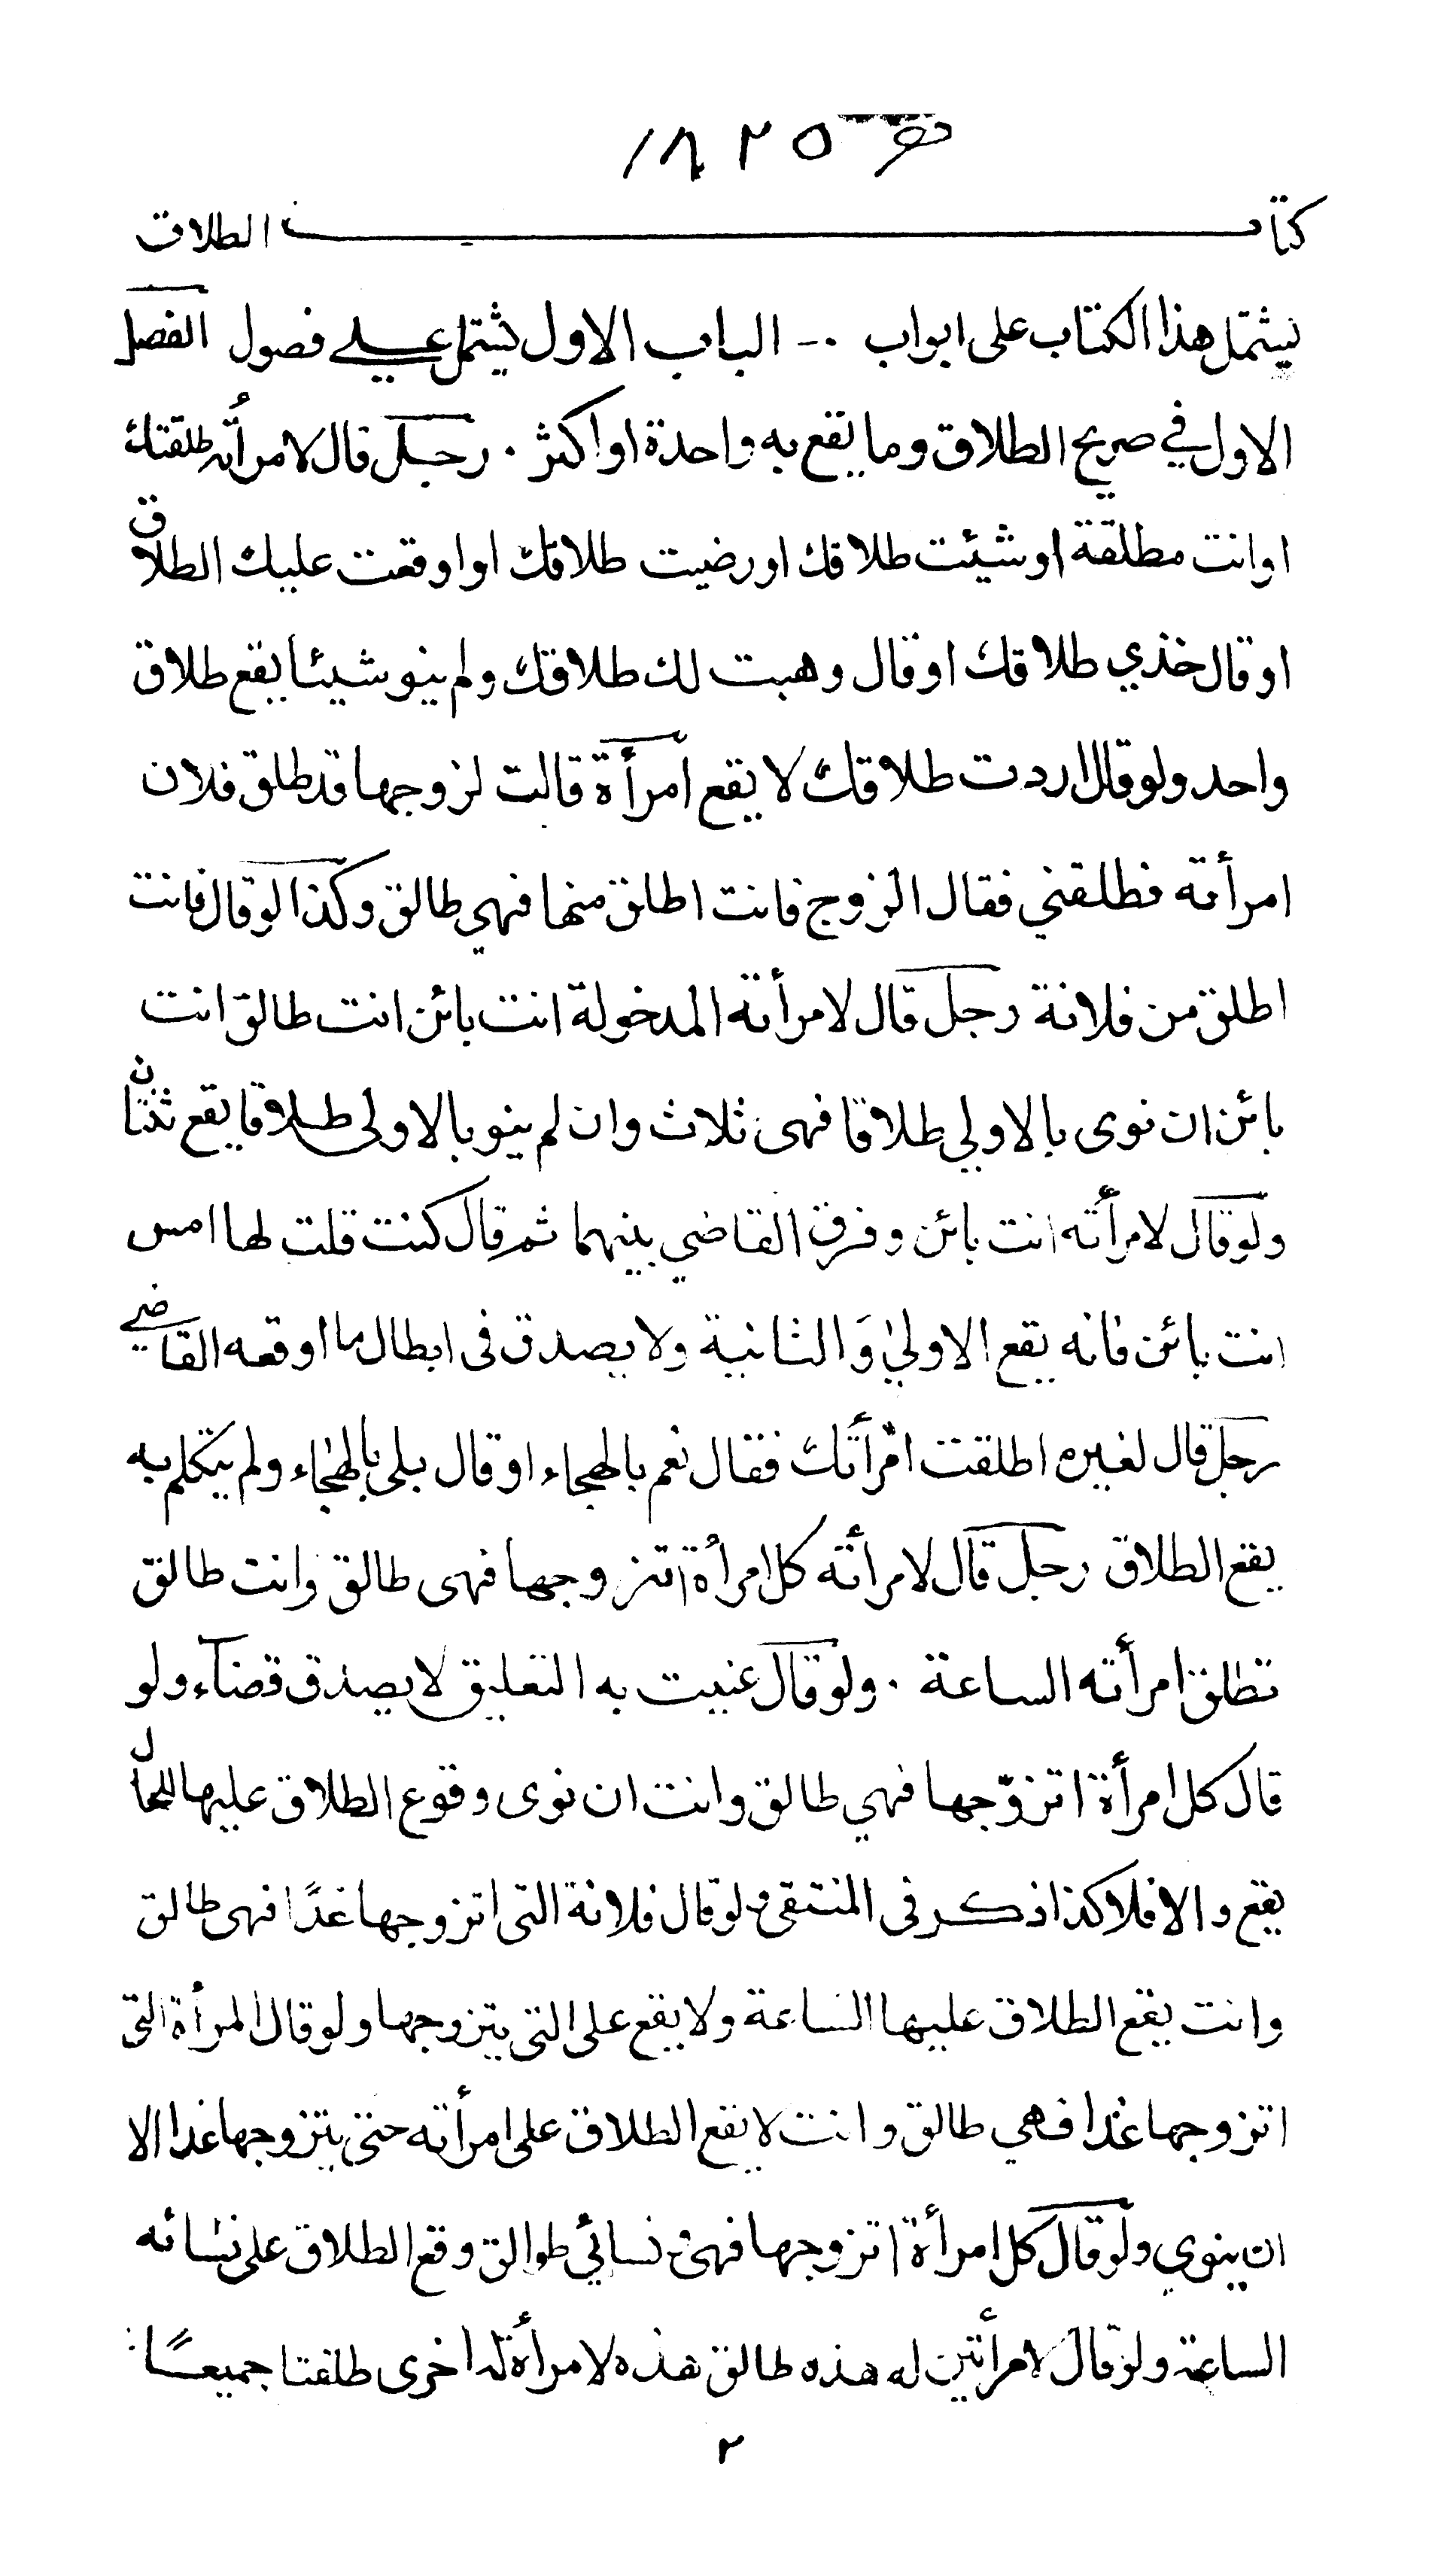 ١٨٢٥
كتاب الطلاق
يشتمل هذا الكتاب على ابواب ٠- الباب الاول يشتمل على فصول الفصل
الاول في صريح الطلاق وما يقع به واحدة او اكثر . رجل قال لامرأته طلقتك
او انت مطلقة او شئت طلاقك او رضيت طلاقك او اوقعت عليك الطلاق
او قال خذي طلاقك او قال وهبت لك طلاقك ولم ينو شيئا يقع طلاق
واحد ولو قال اردت طلاقك لا يقع امرأة قالت لزوجها قد طلق فلان
امرأته فطلقني فقال الزوج فانت اطلق منها فهي طالق وكذا لو قال فانت
اطلق من فلانة رجل قال لامرأته المدخولة انت بائن انت طالق انت
بائن ان نوى بالاولي طلاقا فهى ثلاث وان لم ينو بالاولى طلاقا يقع ثنتان
ولو قال لامرأته انت بائن وفرق القاضي بينهما ثم قال كنت قلت لها امس
انت بائن فانه يقع الاولي وَالثانية ولا يصدق فى ابطال ما اوقعه القاضي
رجل قال لغيره اطلقت امرأتك فقال نعم بالهجاء او قال بلى بالهجاء ولم يتكلم به
يقع الطلاق رجل قال لامرأته كل امرأة اتزوجها فهى طالق وانت طالق
تطلق امرأته الساعة . ولو قال عنيت به التعليق لا يصدق قضآء ولو
قال كل امرأة اتزوّجها فهي طالق وانت ان نوى وقوع الطلاق عليها للحال
يقع والا فلا كذا ذكر فى المنتقى ولو قال فلانة التى اتزوجها غدًا فهى طالق
وانت يقع الطلاق عليها الساعة ولا يقع على التى يتزوجها ولو قال المرأة التى
اتزوجها غدا فهي طالق وانت لا يقع الطلاق على امرأته حتى يتزوجها غدا الا
ان ينوي ولو قال كل امرأة اتزوجها فهى و نسائي طوالق وقع الطلاق على نسائه
الساعة ولو قال لامرأتين له هذه طالق هذه لامرأة له اخرى طلقتا جميعًا
٢